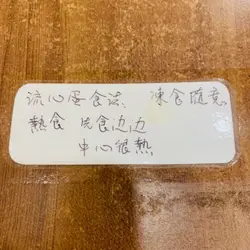 流心蛋食法 凍食隨意
熱食 先食边边
中心很熱